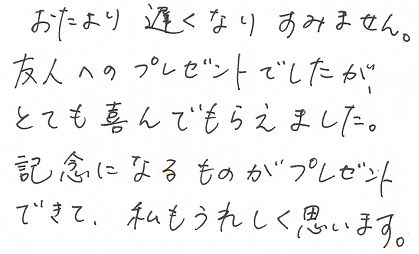 おたより 遅くなり すみません。
友人へのプレゼントでしたが、
とても喜んでもらえました。
記念になるものがプレゼント
できて、私もうれしく思います。